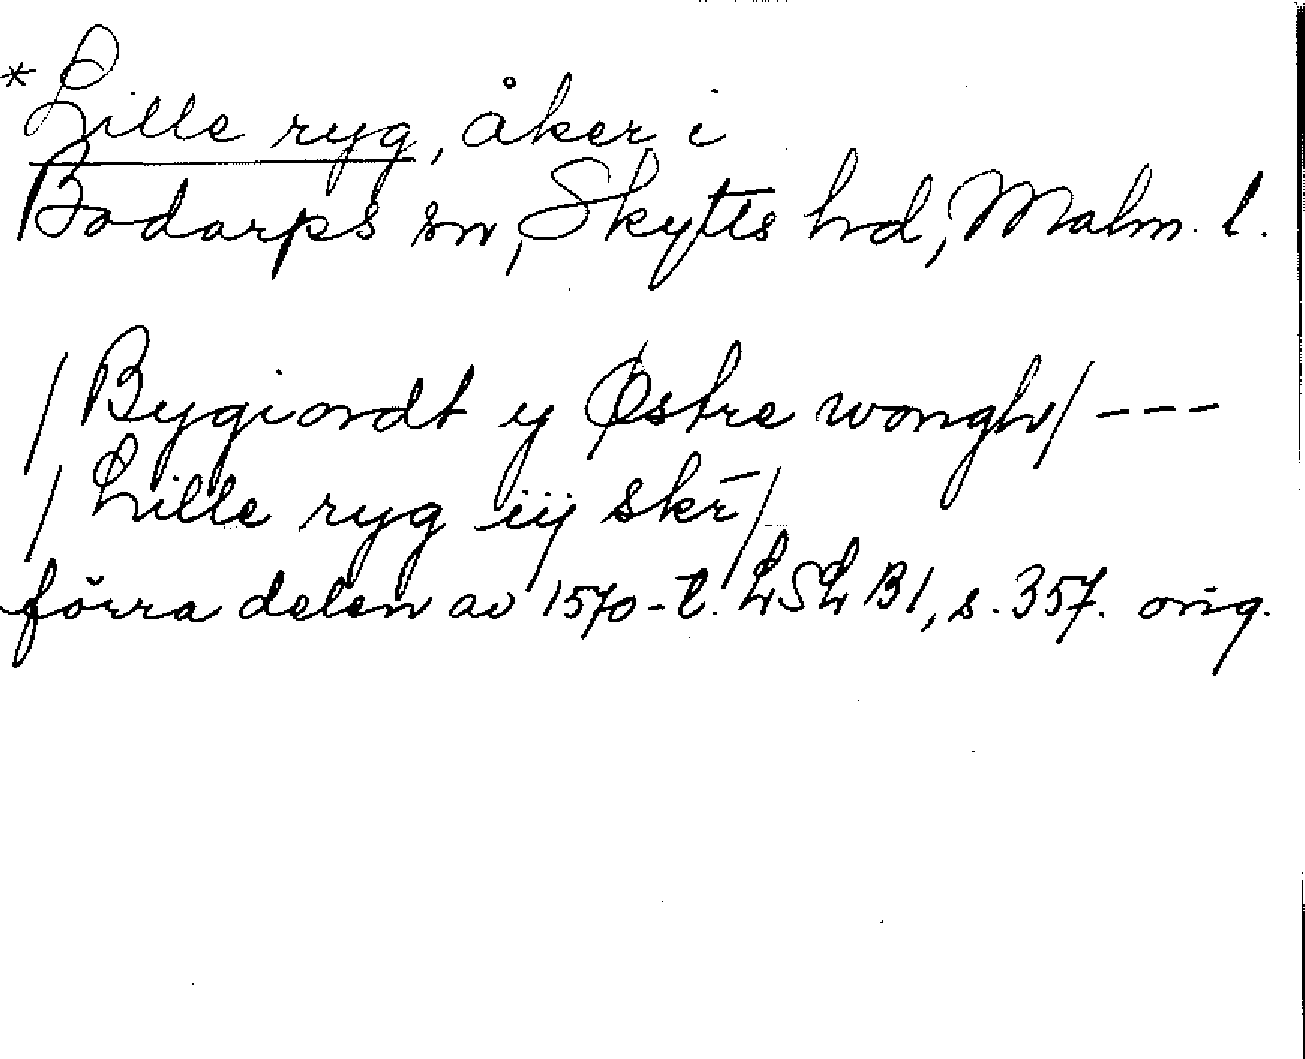 *Lille ryg, åker i
Bodarps sn, Skytts hd, Malm. l.
/Bygiordt y Østre wongh/ ---
/Lille ryg iij skr̄/
förra delen av 1570-t. LSL B1, s. 357. orig.